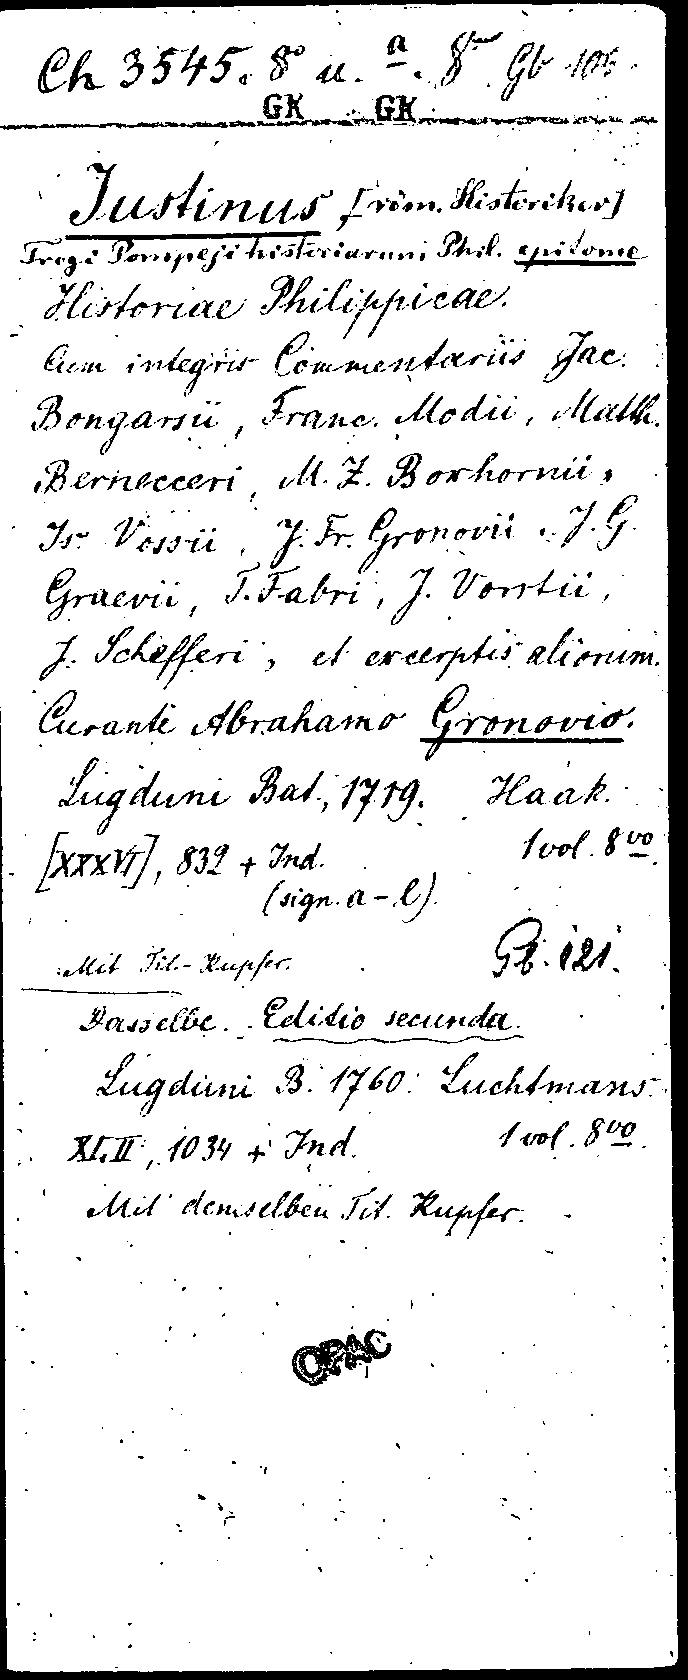 Ch 3545. 8° u. a. 8° Gb
GK GK
Justinus [röm. Historiker]
Trogi Pompeji historiarum Phil. epitome
Historiae Philippicae.
Cum integris Commentariis Jac.
Bongarsii, Franc. Modii, Matth.
Bernecceri, M. Z. Boxhornii,
Is. Vossii, J. Fr. Gronovii, J. G.
Graevii, T. Fabri, J. Vorstii,
J. Schefferi, et excerptis aliorum.
Curante Abrahamo Gronovio.
Lugduni Bat., 1719. Haak.
[XXXVI], 832 + Ind. 1 vol. 8vo
(sign. a-l).
Mit Tit.-Kupfer. Gb. 121.
Dasselbe. Editio secunda.
Lugduni B. 1760. Luchtmans.
XLII, 1034 + Ind. 1 vol. 8vo.
Mit demselben Tit. Kupfer.
OPAC